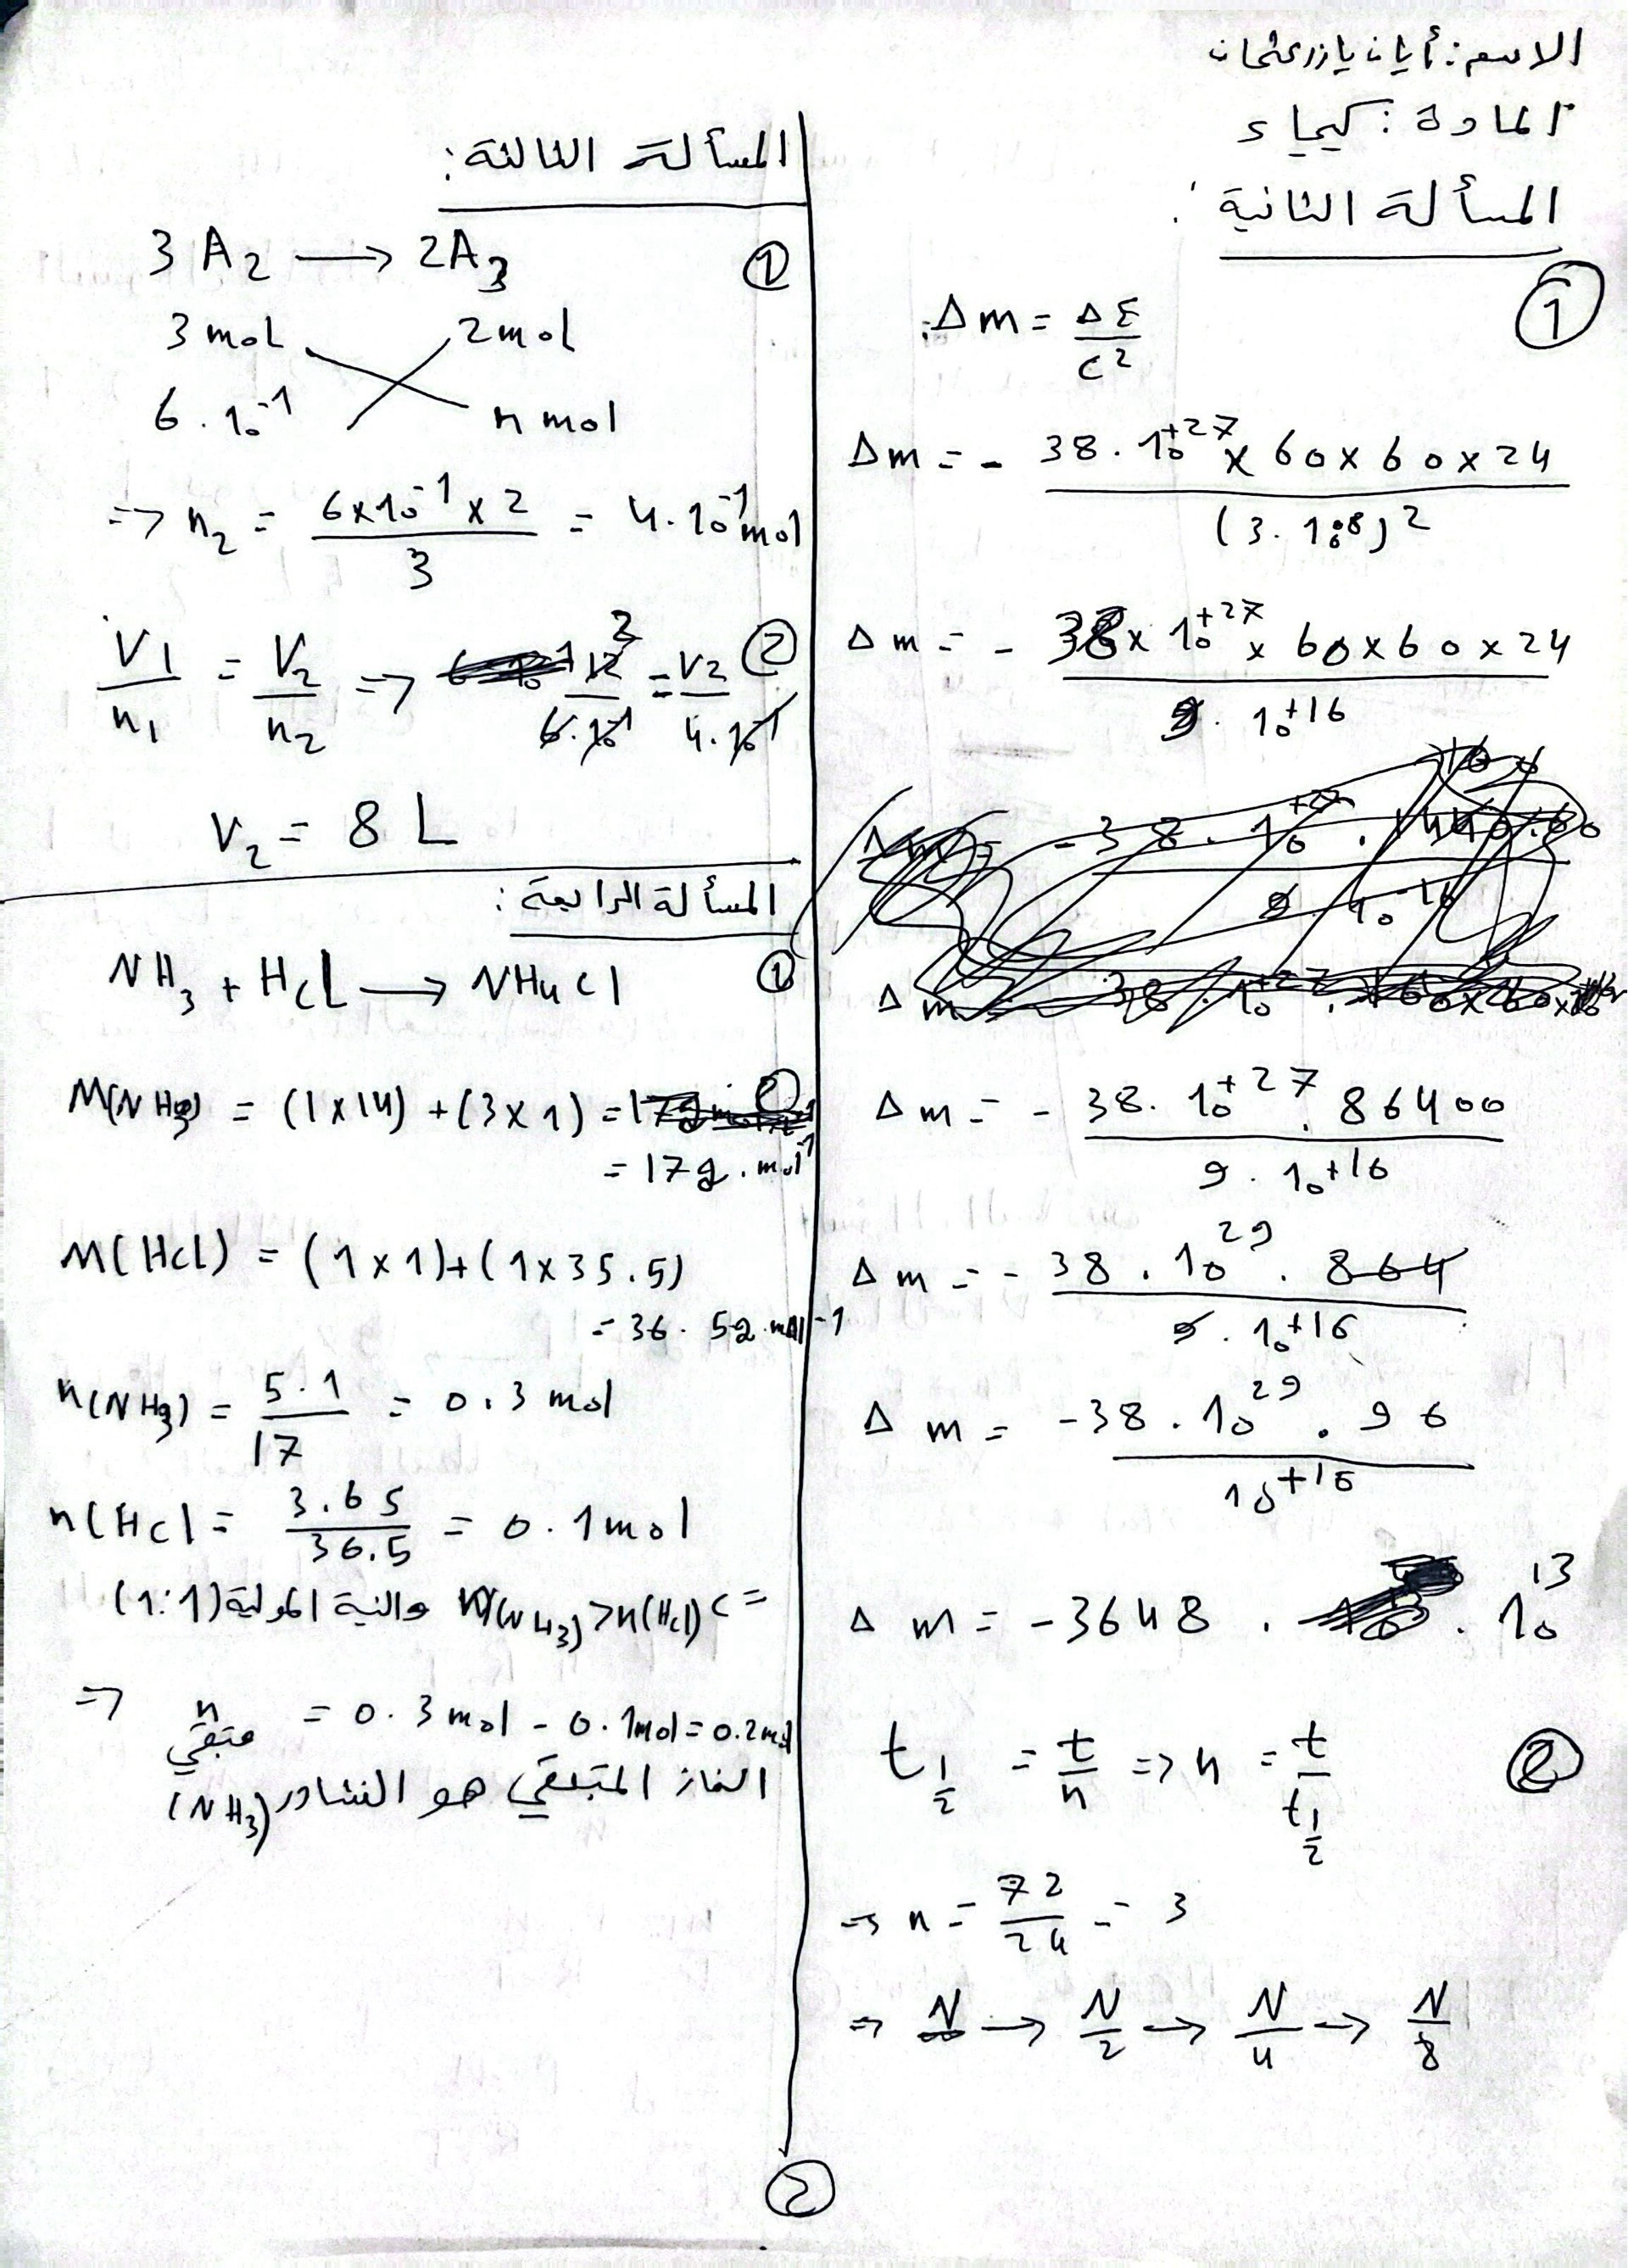 الاسم: أيان يازرعثمان
المادة: كيمياء
المسألة الثانية:
①
Δm = ΔE / c²
Δm = - 38 . 10⁺²⁷ × 60 × 60 × 24 / (3 . 10⁸)²
Δm = - 38 × 10⁺²⁷ × 60 × 60 × 24 / 9 . 10⁺¹⁶
Δm = - 38 . 10⁺²⁷ . 86400 / 9 . 10⁺¹⁶
Δm = - 38 . 10²⁹ . 864 / 9 . 10⁺¹⁶
Δm = -38 . 10²⁹ . 96 / 10⁺¹⁶
Δm = -3648 . 10¹³
②
t½ = t/n => n = t/t½
=> n = 72/24 = 3
=> N → N/2 → N/4 → N/8
المسألة الثالثة:
①
3A₂ → 2A₃
3 mol 2 mol
6 . 10⁻¹ n mol
=> n₂ = 6×10⁻¹ × 2 / 3 = 4 . 10⁻¹ mol
②
V₁/n₁ = V₂/n₂ => 12/6.10⁻¹ = V₂/4.10⁻¹
2
V₂ = 8 L
المسألة الرابعة:
①
NH₃ + HCl → NH₄Cl
M(NH₃) = (1×14) + (3×1) = 17
= 17 g . mol⁻¹
M(HCl) = (1×1)+(1×35.5)
= 36.5 g.mol⁻¹
n(NH₃) = 5.1/17 = 0.3 mol
n(HCl = 3.65/36.5 = 0.1 mol
<= n(NH₃) > n(HCl) والنبة المولية (1:1)
=> n متبقي = 0.3 mol - 0.1 mol = 0.2 mol
الغاز المتبقي هو النشادر (NH₃)
②